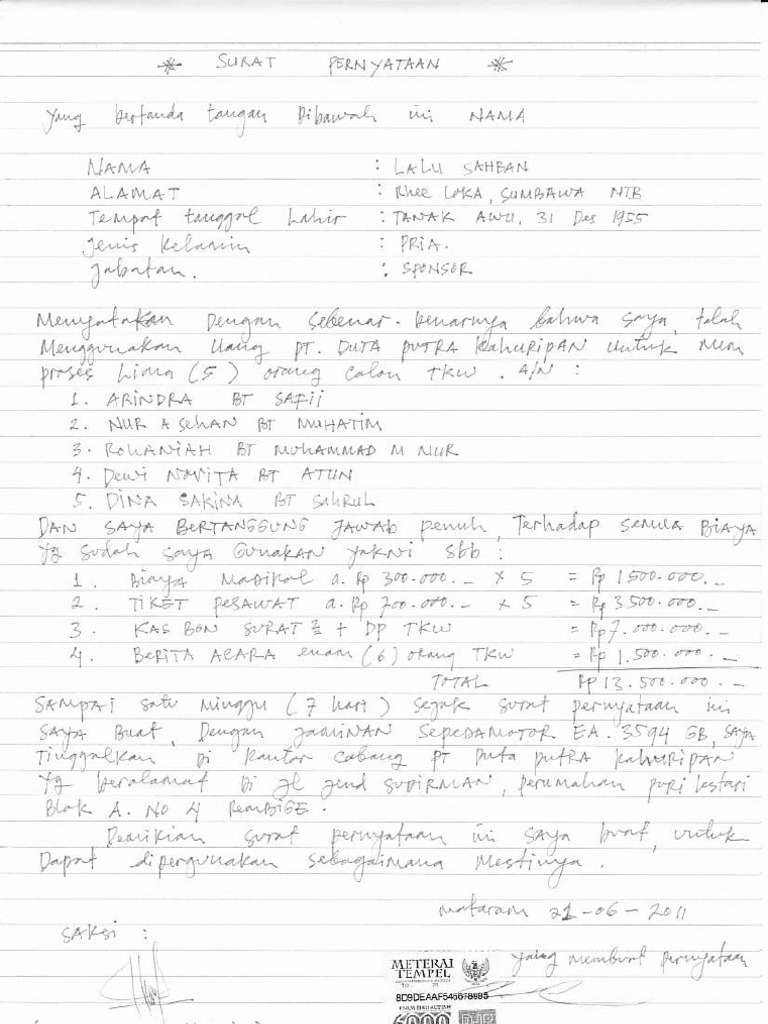 * SURAT PERNYATAAN *
Yang bertanda tangan Dibawah ini NAMA
NAMA : LALU SAHBAN
ALAMAT : Rhee LOKA, SUMBAWA NTB
Tempat tanggal Lahir : TANAK AWU, 31 Des 1955
Jenis Kelamin : PRIA.
Jabatan. : SPONSOR
Menyatakan Dengan Sebenar-benarnya bahwa saya, telah
Menggunakan Uang PT. DUTA PUTRA KAHURIPAN untuk mem
proses Lima (5) orang Calon TKW. A/N :
1. ARINDRA BT SAFII
2. NUR ASEHAN BT MUHATIM
3. ROHANIAH BT MUHAMMAD M NUR
4. Dewi NOVITA BT ATUN
5. DINA SAKINA BT SAHRUH
DAN SAYA BERTANGGUNG JAWAB penuh, Terhadap Semua BIAYA
Yg Sudah saya GUNAKAN yakni Sbb :
1. Biaya Madikal a. Rp 300.000.- x 5 = Rp 1500.000.-
2. TIKET PESAWAT a. Rp 700.000.- x 5 = Rp 3.500.000.-
3. KAS BON SURAT2 + DP TKW = Rp 7.000.000.-
4. BERITA ACARA enam (6) orang TKW = Rp 1.500.000.-
TOTAL Rp 13.500.000.-
SAMPAI satu Minggu (7 hari) sejak surat pernyataan ini
SAYA Buat, Dengan JAMINAN SEPEDAMOTOR EA. 3594 GB, saya
Tinggalkan Di Kantor Cabang PT Duta PUTRA Kahuripan
Yg beralamat Di Jl Jend SUDIRMAN, perumahan puri lestari
Blok A. No 4 Rembige.
Demikian surat pernyataan ini saya buat, untuk
Dapat dipergunakan sebagaimana Mestinya.
Mataram 21-06-2011
SAKSI :
yang membuat pernyataan
METERAI
TEMPEL
6000